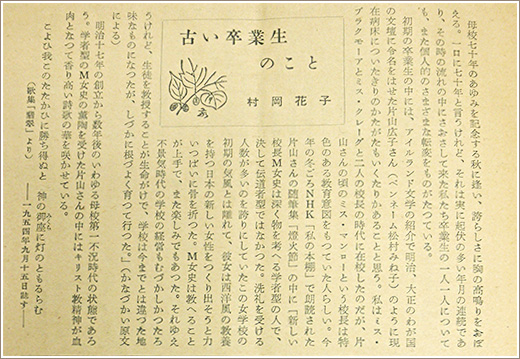 古い卒業生
のこと
村岡花子
母校七十年のあゆみを記念する秋に逢い、誇らしさに胸の高鳴りをおぼ
える。一口に七十年と言うけれど、それは実に起伏の多い年月の連続であ
り、その時の流れの中にさおさして来た私たち卒業生の一人一人について
も、また個人的のさまざまな転変をものがたつている。
初期の卒業生の中には、アイルランド文学の紹介で明治、大正のわが国
の文壇に令名をはせた片山広子さん（ペンネーム松村みね子）のように現
在病床についたきりのかたがたもいくたりかあることと思う。私はミス・
ブラクモーアとミス・クレーグと二人の校長の時代に在校したのだが、片
山さんの頃のミス・マンローという校長は特
色のある教育意図をもつていた人らしい。今
年の冬ごろNHK「私の本棚」で朗読された
片山さんの随筆集「燈火節」の中に「新しい
校長M女史は深く物を考へる学者型の人で、
決して伝道者型ではなかつた。洗礼を受ける
人数が多いのを誇りにしていたこの女学校の
初期の気風とは離れて、彼女は西洋風の教養
を持つ日本の新しい女性をつくり出そうと力
いつぱいに骨を折つた。M女史は教へること
が上手で、また楽しみでもあつた。それゆえ
不景気時代の学校の経営もむづかしかつたろ
うけれど、生徒を教授することが生命がけで、学校は今までとは違つた地
味なものになつたが、しづかに根づよく育つて行つた。」（かなづかい原文
による）
明治十七年の創立から数年後のいわゆる母校第一不況時代の状態であろ
う。学者型のM女史の薫陶を受けた片山さんの中にはキリスト教精神が血
肉となつて香り高い詩歌の華を咲かせている。
こよひ我このたたかひに勝ち得ぬと　神の御座に灯のともるらむ
（歌集「翡翠」より）
――一九五四年九月十五日話す――